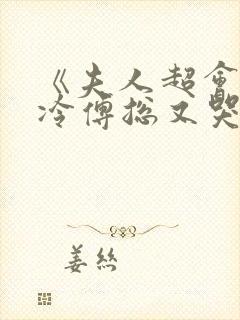 《夫人超會
冷傅總又哭
姜絲